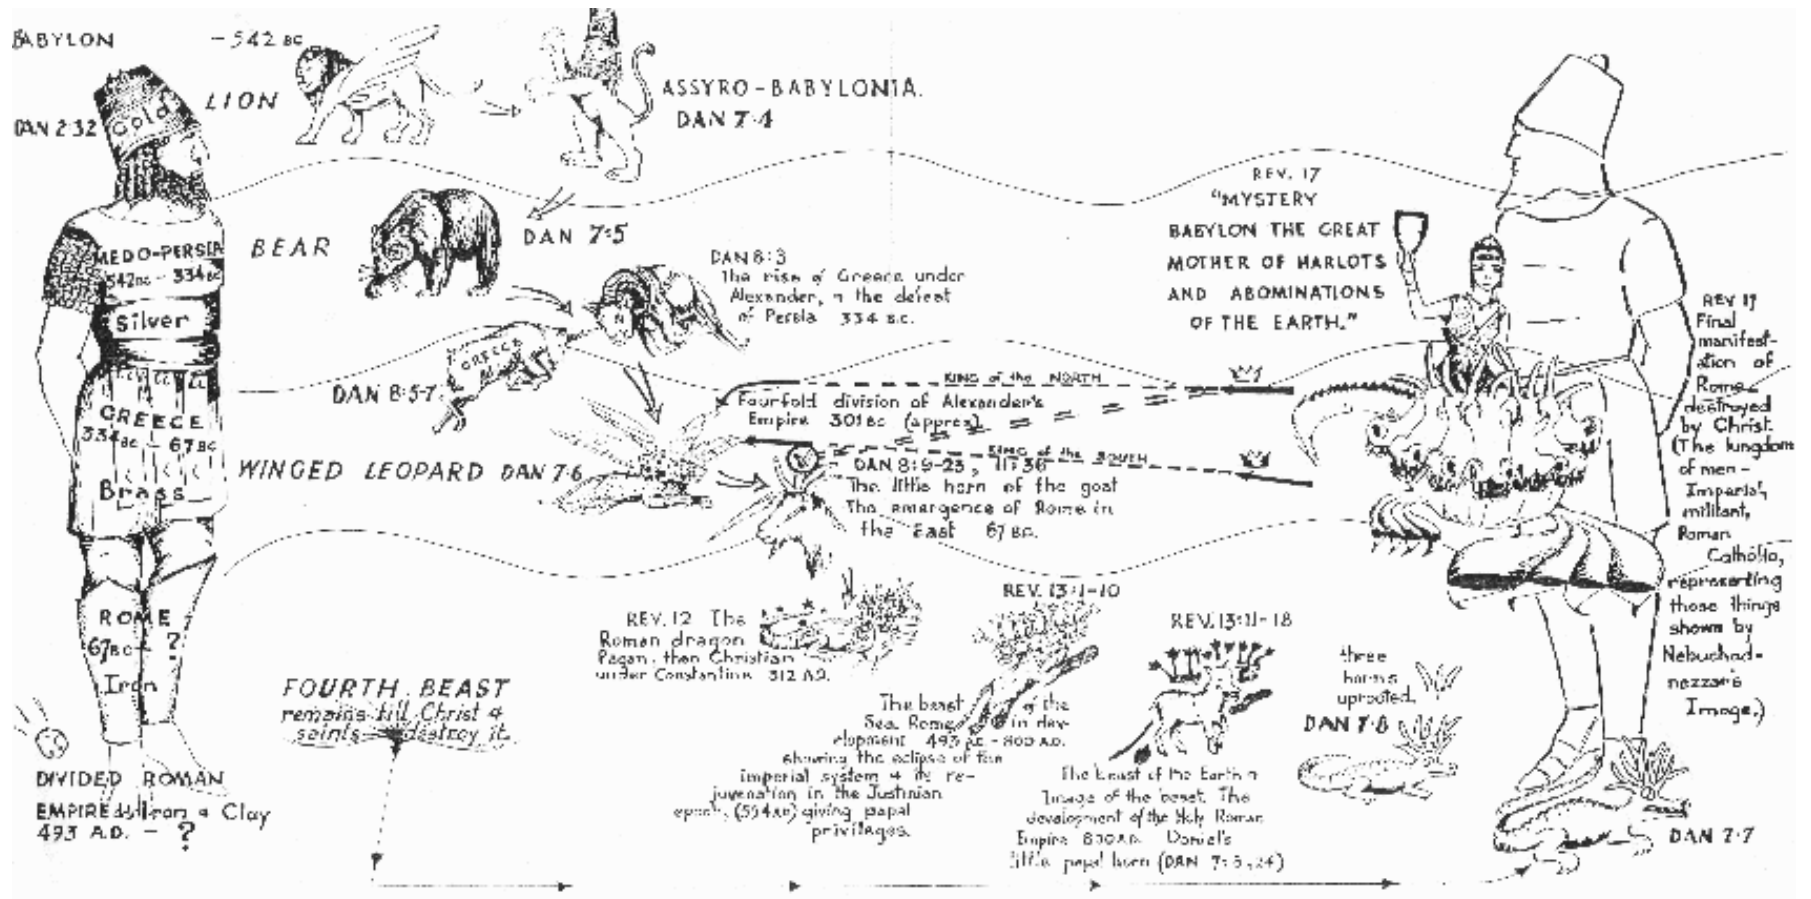 BABYLON
-542 BC
DAN 2:32
Gold
LION
ASSYRO-BABYLONIA.
DAN 7:4
MEDO-PERSIA
542BC - 334BC
Silver
BEAR
DAN 7:5
DAN 8:3
The rise of Greece under
Alexander, & the defeat
of Persia 334 B.C.
GREECE
DAN 8:5-7.
GREECE
334BC - 67BC
Brass
WINGED LEOPARD DAN 7:6
KING of the NORTH
Fourfold division of Alexander's
Empire 301BC (approx)
KING of the SOUTH
DAN 8:9-23, 11:36
The little horn of the goat
The emergence of Rome in
the East 67 BC.
REV. 17
"MYSTERY
BABYLON THE GREAT
MOTHER OF HARLOTS
AND ABOMINATIONS
OF THE EARTH."
REV 17
Final
manifest-
ation of
Rome -
destroyed
by Christ.
(The kingdom
of men -
Imperial,
militant,
Roman
Catholic,
representing
those things
shown by
Nebuchad-
nezzar's
Image.)
ROME
67BC - ?
Iron
DIVIDED ROMAN
EMPIRE Iron & Clay
493 A.D. - ?
FOURTH BEAST
remains till Christ &
saints destroy it.
REV. 12 The
Roman dragon
Pagan, then Christian
under Constantine 312 A.D.
REV. 13:1-10
The beast of the
Sea. Rome in dev-
elopment 493 A.D. - 800 A.D.
showing the eclipse of the
imperial system & its re-
juvenation in the Justinian
epoch, giving papal
privileges.
REV. 13:11-18
The beast of the Earth &
Image of the beast. The
development of the Holy Roman
Empire 800 A.D. Daniel's
little papal horn (DAN 7:8,24)
three
horns
uprooted.
DAN 7:8
DAN 7:7